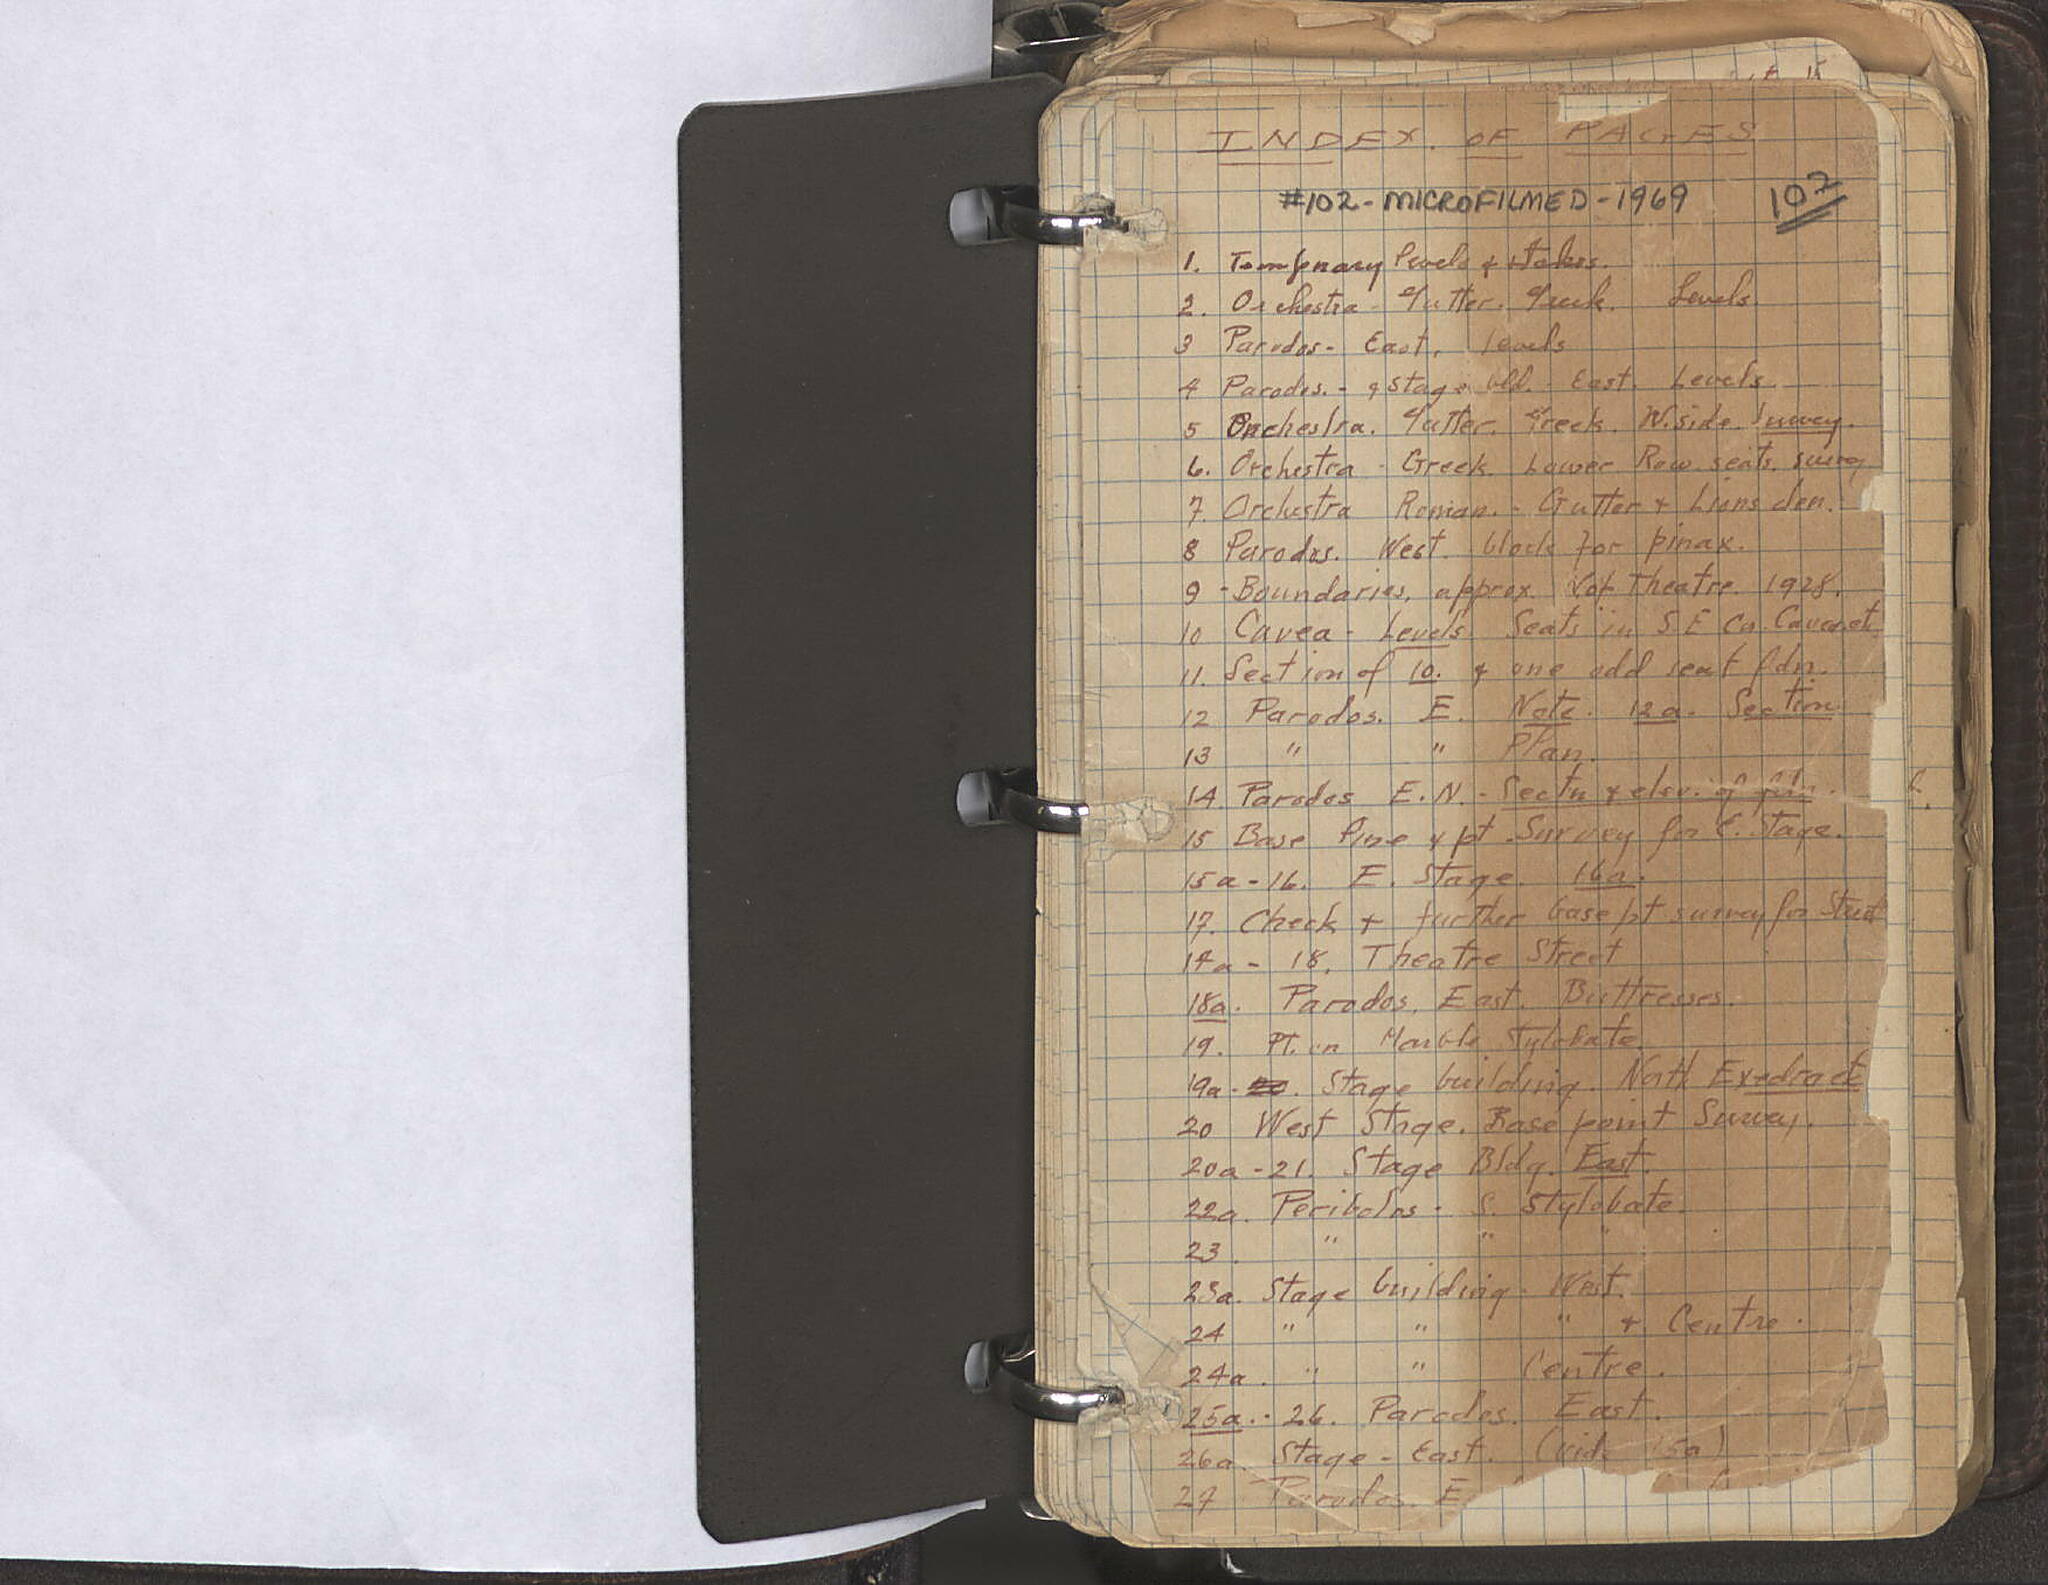 INDEX. OF PAGES
#102 - MICROFILMED - 1969 102
1. Temporary levels & stakes.
2. Orchestra - Gutter. Greek. Levels
3 Parodos - East. levels
4 Parodos. - & stage bld. East. Levels.
5 Orchestra. Gutter. Greek. W. side. Survey.
6. Orchestra - Greek. Lower Row. seats. survey
7. Orchestra Roman. - Gutter & Lions den.
8 Parodos. West. block for pinax.
9 - Boundaries, approx. of Theatre. 1928.
10 Cavea - Levels. Seats in S E Cor.
11. Section of 10. & one odd seat fdn.
12 Parodos. E. Note. 12a. Section
13 " " Plan.
14. Parodos E. N. - Sectn & elev. of fdn.
15 Base line & pt Survey for E. Stage.
15a - 16. E. Stage. 16a.
17. Check + further base pt survey for Street
17a - 18. Theatre Street
18a. Parodos. East. Buttresses.
19. Pt. on Marble Stylobate.
19a - 20. Stage building. North Exedra etc
20 West Stage. Base point Survey.
20a - 21. Stage Bldg. East.
22a. Peribolos - S. Stylobate.
23. " " "
23a. Stage building. West.
24 " " " & Centre.
24a. " " Centre.
25a. - 26. Parodos. East.
26a. Stage - East. (vide 15a)
27 Parodos. E